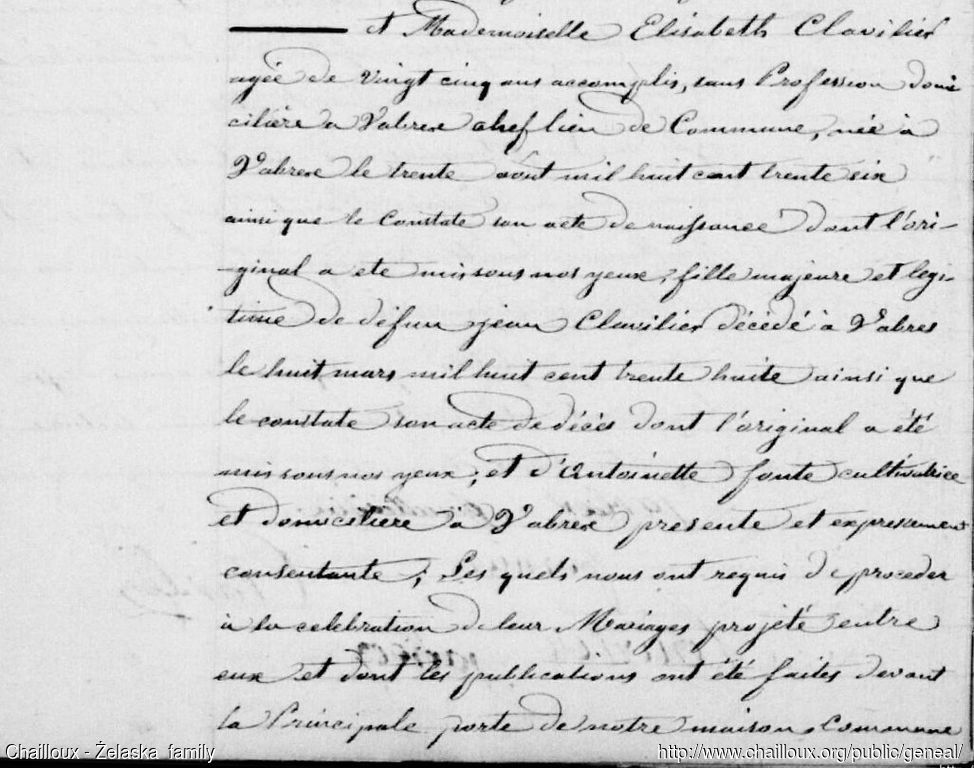 et Mademoiselle Elisabeth Clavilier
agée de vingt cinq ans accomplis, sans Profession domi
ciliere a Vabres chef lieu de Commune, née à
Vabres le trente août mil huit cent trente six
ainsi que le Constate son acte de naissance dont l'ori-
-ginal a ete mis sous nos yeux, fille majeure et legi-
time de défun jean Clavilier décédé à Vabres
le huit mars mil huit cent trente huite ainsi que
le constate son acte de décès dont l'original a été
mis sous nos yeux; et d'Antoinette fonte cultivatrice
et domiciliere à Vabres presente et expressement
consentante; Les quels nous ont requis de proceder
a la celebration de leur Mariages projeté entre
eux et dont les publications ont été faites devant
la Principale porte de notre maison Commune
Chailloux - Želaska family
http://www.chailloux.org/public/geneal/